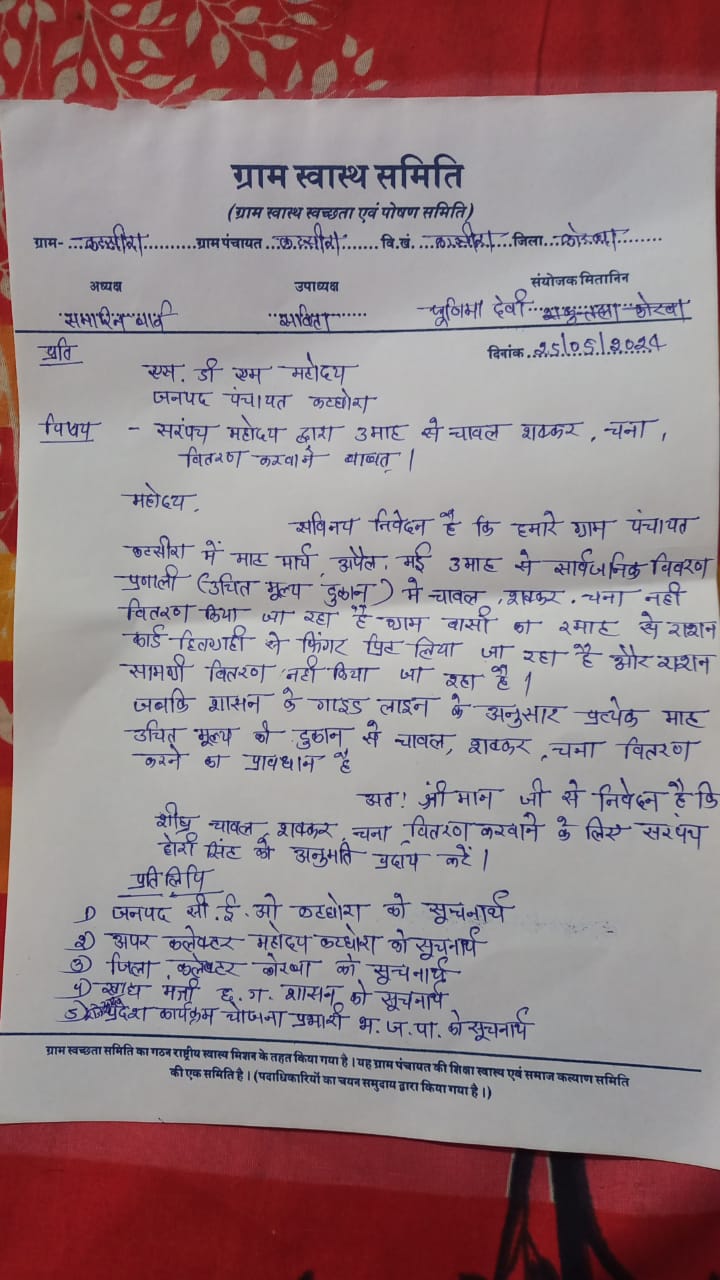 ग्राम स्वास्थ समिति
(ग्राम स्वास्थ स्वच्छता एवं पोषण समिति)
ग्राम- ............ ग्राम पंचायत ............ वि.खं. ............ जिला. कोरबा
अध्यक्ष उपाध्यक्ष संयोजक मितानिन
समारिन बाई सविता पूर्णिमा देवी
दिनांक. 25/05/2024
प्रति
एस. डी एम महोदय
जनपद पंचायत कटघोरा
विषय - सरंपच महोदय द्वारा 3माह से चावल शक्कर, चना,
वितरण करवाने बाबत् |
महोदय,
सविनय निवेदन है कि हमारे ग्राम पंचायत
में माह मार्च अप्रैल, मई 3माह से सार्वजनिक वितरण
प्रणाली (उचित मूल्य दुकान) में चावल, शक्कर, चना नही
वितरण किया जा रहा है ग्राम वासी का 3माह से राशन
कार्ड हितग्राही से फिंगर प्रिंट लिया जा रहा है और राशन
सामग्री वितरण नही किया जा रहा है |
जबकि शासन के गाइड लाइन के अनुसार प्रत्येक माह
उचित मूल्य की दुकान से चावल, शक्कर, चना वितरण
करने का प्रावधान है
अतः श्री मान जी से निवेदन है कि
शीघ्र चावल, शक्कर, चना वितरण करवाने के लिए सरपंच
होरी सिंह को अनुमति प्रदाय करें |
प्रतिलिपि
1) जनपद सी.ई.ओ कटघोरा को सूचनार्थ
2) अपर कलेक्टर महोदय कटघोरा को सूचनार्थ
3) जिला कलेक्टर कोरबा को सूचनार्थ
4) खाद्य मंत्री छ.ग. शासन को सूचनार्थ
5) प्रदेश कार्यक्रम योजना प्रभारी भ.ज.पा. को सूचनार्थ
ग्राम स्वच्छता समिति का गठन राष्ट्रीय स्वास्थ मिशन के तहत किया गया है। यह ग्राम पंचायत की शिक्षा स्वास्थ एवं समाज कल्याण समिति
की एक समिति है। (पदाधिकारियों का चयन समुदाय द्वारा किया गया है।)